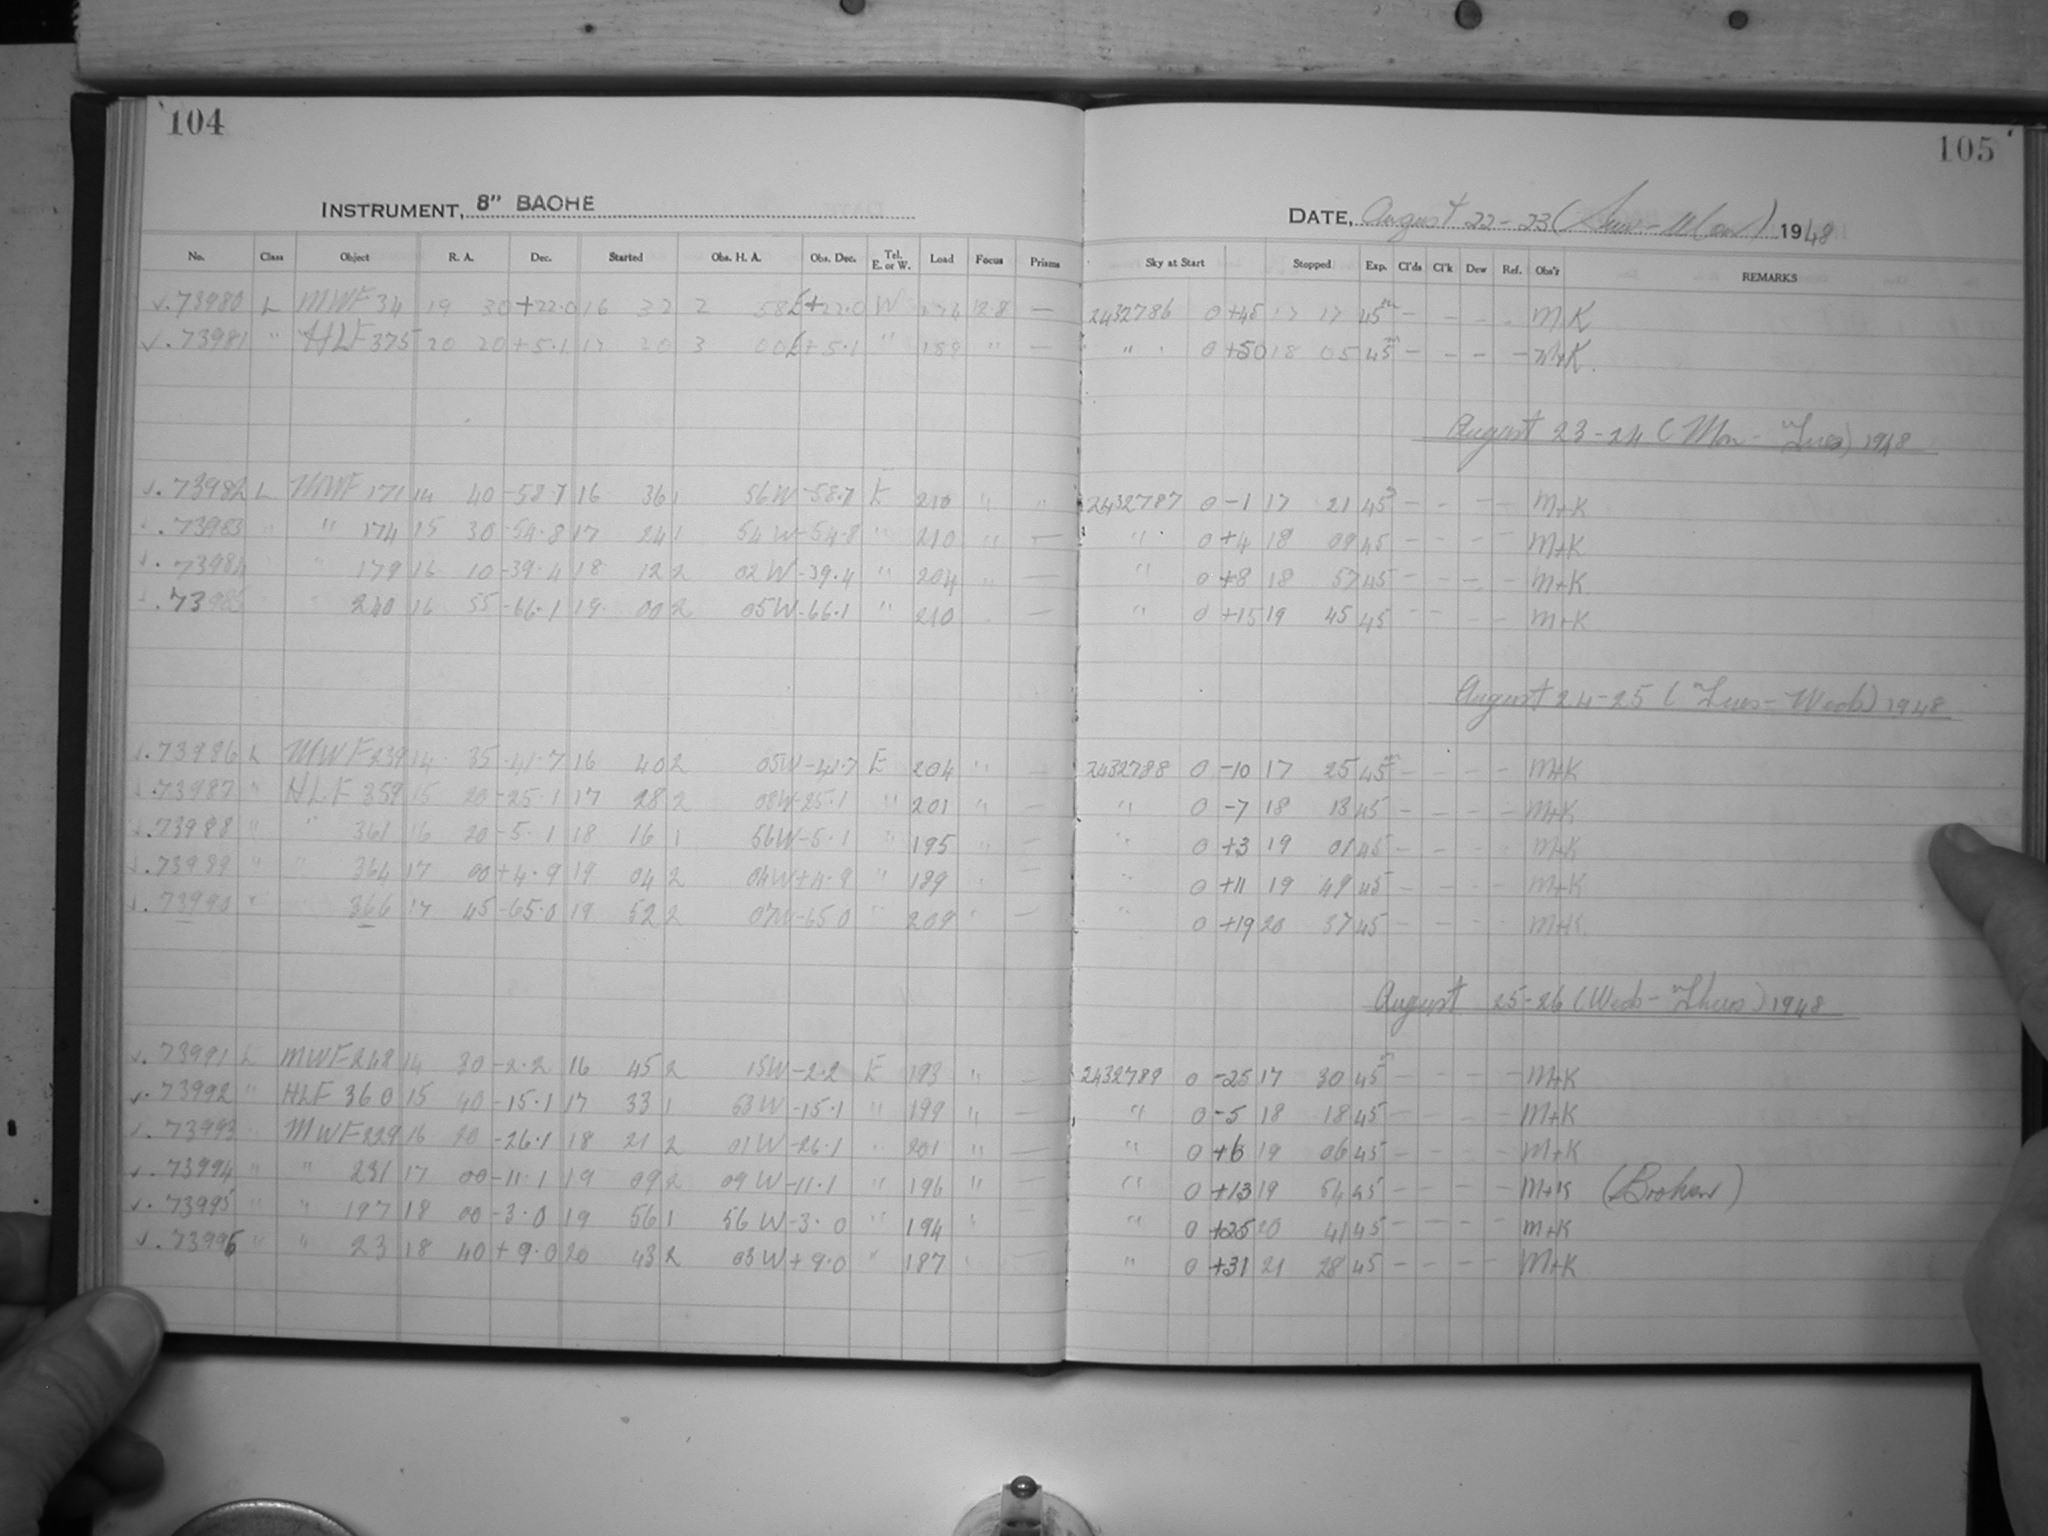 104
105
INSTRUMENT, 8" BACHE
DATE, August 22-23 (Sun-Mon) 1948
No. Class Object R. A. Dec. Started Obs. H. A. Obs. Dec. Tel. E. or W. Load Focus Prisms Sky at Start Stopped Exp. Cl'ds Cl'k Dew Ref. Obs'r REMARKS
√.73980 L MWF 34 19 30 +22.0 16 32 2 58E +22.0 W 174 12.8 — 2432786 0 +45 17 17 45m — — — — M+K
√.73981 " HLF 375 20 20 +5.1 17 20 3 00E +5.1 " 189 " — " 0 +50 18 05 45m — — — — M+K.
August 23-24 (Mon-Tues) 1948
√.73982 L MWF 171 14 40 -58.7 16 36 1 56W -58.7 E 210 " " 2432787 0 -1 17 21 45 — — — — M+K
√.73983 " " 174 15 30 -54.8 17 24 1 54W -54.8 " 210 " — " 0 +4 18 09 45 — — — — M+K
√.73984 " 179 16 10 -39.4 18 12 2 02W -39.4 " 204 " — " 0 +8 18 57 45 — — — — M+K
√.73985 " 240 16 55 -66.1 19 00 2 05W -66.1 " 210 — " 0 +15 19 45 45 — — — — M+K
August 24-25 (Tues-Wed) 1948
√.73986 L MWF 239 14 35 -41.7 16 40 2 05W -41.7 E 204 " — 2432788 0 -10 17 25 45m — — — — M+K
√.73987 " HLF 359 15 20 -25.1 17 28 2 08W -25.1 " 201 " — " 0 -7 18 13 45 — — — — M+K
√.73988 " " 361 16 20 -5.1 18 16 1 56W -5.1 " 195 " — " 0 +3 19 01 45 — — — M+K
√.73989 " " 364 17 00 +4.9 19 04 2 04W +4.9 " 189 — " 0 +11 19 49 45 — — — — M+K
√.73990 " 366 17 45 -65.0 19 52 2 07W -65.0 " 209 " — " 0 +19 20 37 45 — — — — M+K
August 25-26 (Wed-Thurs) 1948
√.73991 L MWF 248 14 30 -2.2 16 45 2 15W -2.2 E 193 " — 2432789 0 -25 17 30 45m — — — — M+K
√.73992 " HLF 360 15 40 -15.1 17 33 1 53W -15.1 " 199 " — " 0 -5 18 18 45 — — — — M+K
√.73993 MWF 229 16 20 -26.1 18 21 2 01W -26.1 " 201 " — " 0 +6 19 06 45 — — — — M+K
√.73994 " " 231 17 00 -11.1 19 09 2 09W -11.1 " 196 " — " 0 +13 19 54 45 — — — — M+K (Broken)
√.73995 " " 197 18 00 -3.0 19 56 1 56W -3.0 " 194 " — " 0 +25 20 41 45 — — — — M+K
√.73996 " " 23 18 40 +9.0 20 43 2 03W +9.0 " 187 " — " 0 +31 21 28 45 — — — — M+K